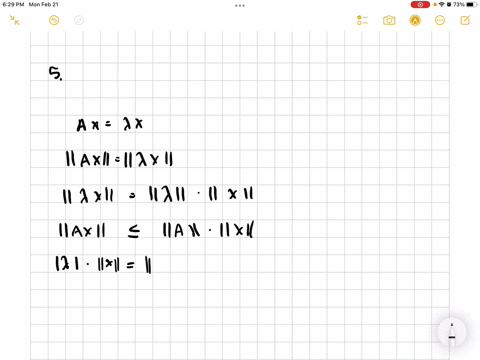 6:29 PM Mon Feb 21
73%
5.
Ax = λx
||Ax|| = ||λx||
||λx|| = ||λ|| · ||x||
||Ax|| ≤ ||A|| · ||x||
|λ| · ||x|| = ||